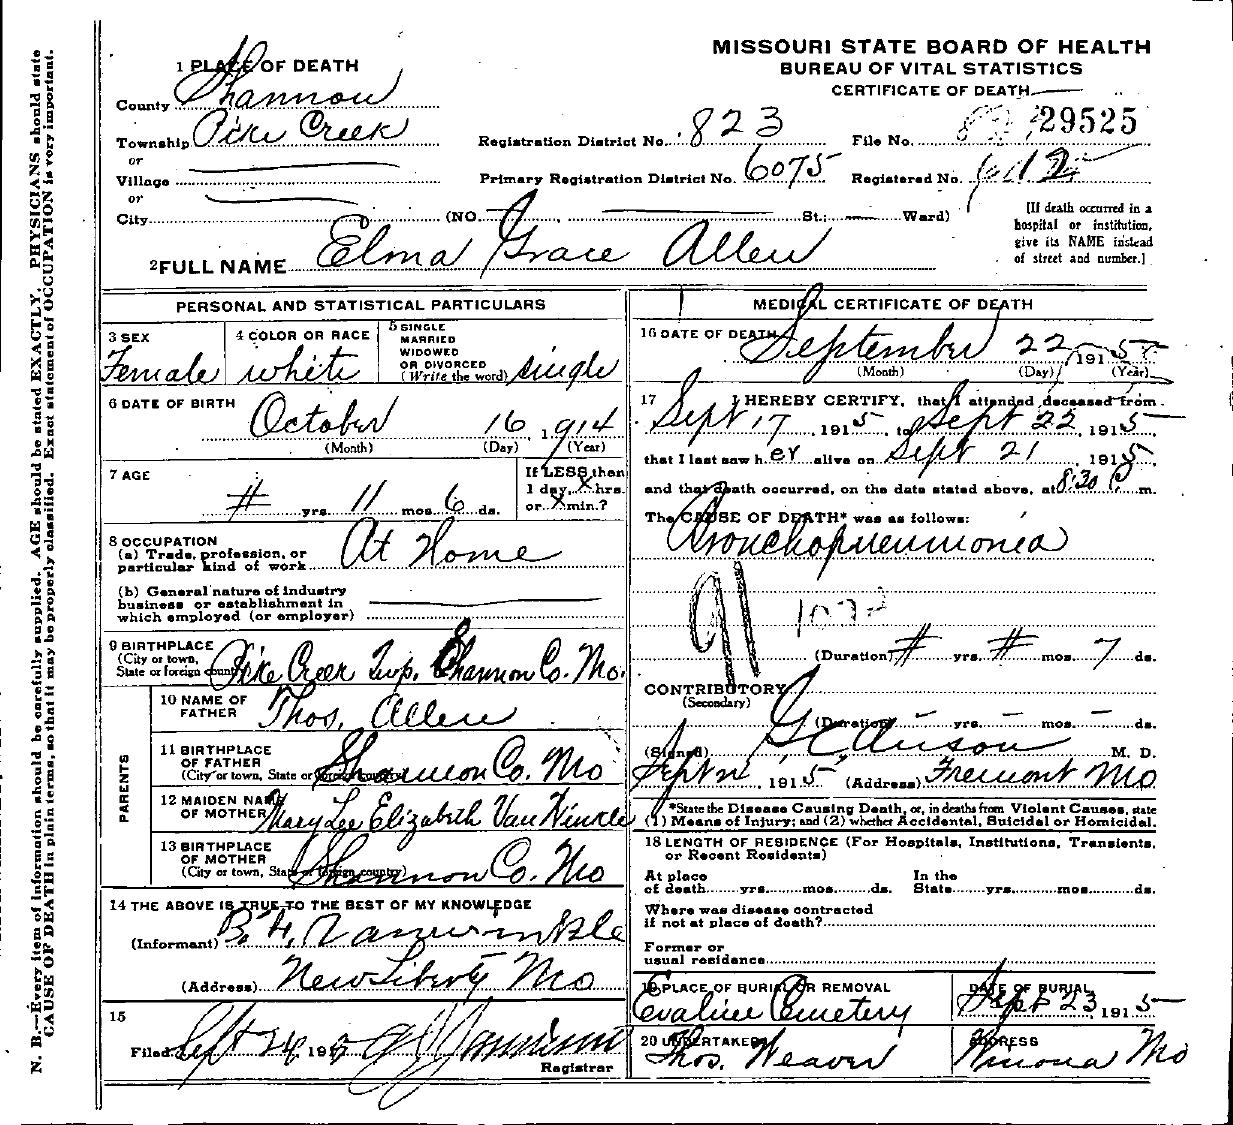 MISSOURI STATE BOARD OF HEALTH
BUREAU OF VITAL STATISTICS
CERTIFICATE OF DEATH
1 PLACE OF DEATH
County Shannon
Township Pike Creek
or
Village
or
City (NO. , St.; Ward)
Registration District No. 823
File No. 29525
Primary Registration District No. 6075
Registered No.
[If death occurred in a
hospital or institution,
give its NAME instead
of street and number.]
2 FULL NAME Elma Grace Allen
PERSONAL AND STATISTICAL PARTICULARS
3 SEX Female
4 COLOR OR RACE white
5 SINGLE
MARRIED
WIDOWED
OR DIVORCED
(Write the word) single
6 DATE OF BIRTH October 16, 1914
(Month) (Day) (Year)
7 AGE
# yrs. 11 mos. 6 ds.
If LESS than
1 day, X hrs.
or X min.?
8 OCCUPATION
(a) Trade, profession, or
particular kind of work At Home
(b) General nature of industry
business or establishment in
which employed (or employer)
9 BIRTHPLACE
(City or town,
State or foreign country) Pike Creek Twp. Shannon Co. Mo.
PARENTS
10 NAME OF
FATHER Thos. Allen
11 BIRTHPLACE
OF FATHER
(City or town, State or foreign country) Shannon Co. Mo
12 MAIDEN NAME
OF MOTHER Mary Lee Elizabeth Van Winkle
13 BIRTHPLACE
OF MOTHER
(City or town, State or foreign country) Shannon Co. Mo
14 THE ABOVE IS TRUE TO THE BEST OF MY KNOWLEDGE
(Informant) B. H. Vanwinkle
(Address) New Liberty Mo
15
Filed Sept 24 1915
Registrar
MEDICAL CERTIFICATE OF DEATH
16 DATE OF DEATH September 22, 1915
(Month) (Day) (Year)
17 I HEREBY CERTIFY, that I attended deceased from
Sept 17, 1915, to Sept 22, 1915,
that I last saw her alive on Sept 21, 1915,
and that death occurred, on the date stated above, at 8:30 P m.
The CAUSE OF DEATH* was as follows:
Bronchopneumonia
91
(Duration) # yrs. # mos. 7 ds.
CONTRIBUTORY
(Secondary)
(Duration) - yrs. - mos. - ds.
(Signed) M. D.
Sept, 1915 (Address) Fremont Mo
*State the Disease Causing Death, or, in deaths from Violent Causes, state
(1) Means of Injury; and (2) whether Accidental, Suicidal or Homicidal.
18 LENGTH OF RESIDENCE (For Hospitals, Institutions, Transients,
or Recent Residents)
At place
of death yrs. mos. ds.
In the
State yrs. mos. ds.
Where was disease contracted
if not at place of death?
Former or
usual residence
19 PLACE OF BURIAL OR REMOVAL
Evaline Cemetery
DATE OF BURIAL
Sept 23 1915
20 UNDERTAKER
Thos. Weaver
ADDRESS
Winona Mo
N. B.—Every item of information should be carefully supplied. AGE should be stated EXACTLY. PHYSICIANS should state
CAUSE OF DEATH in plain terms, so that it may be properly classified. Exact statement of OCCUPATION is very important.